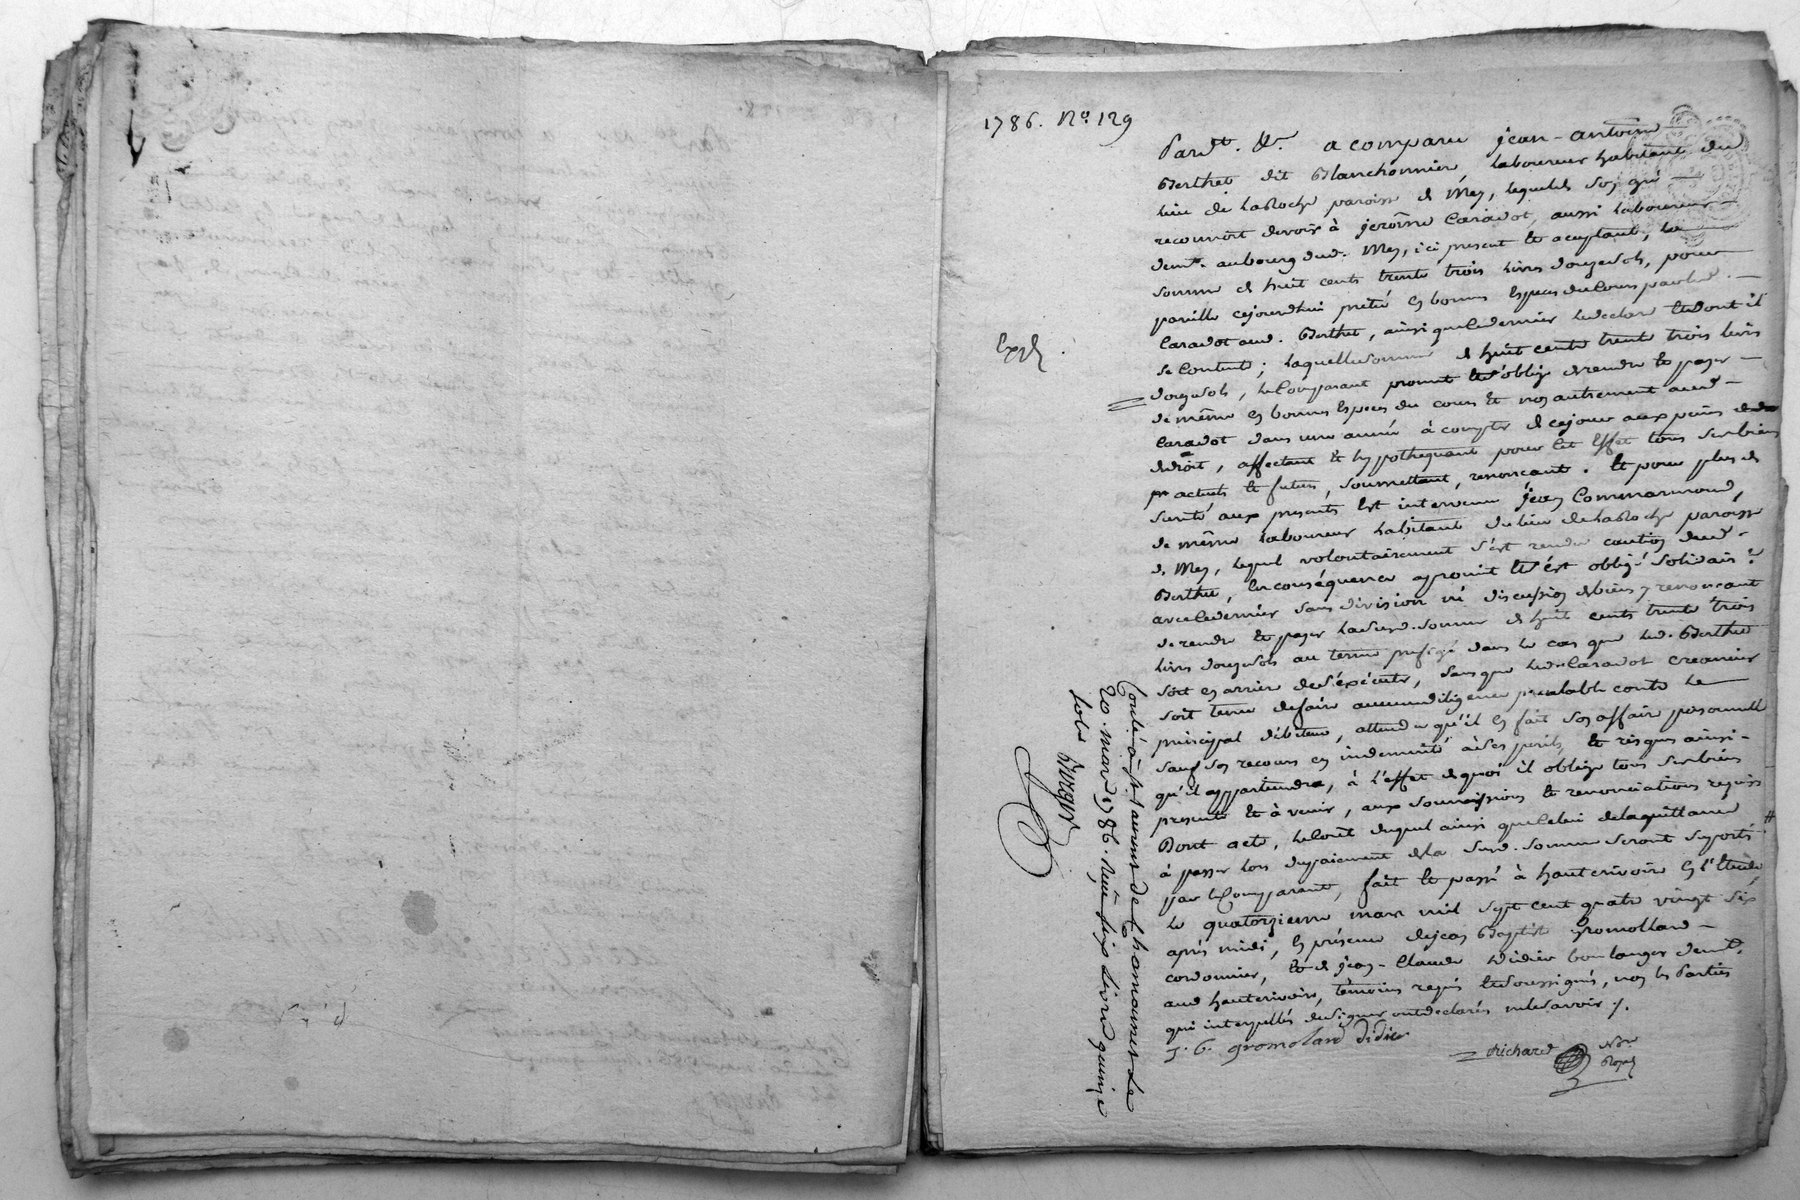 1786. No. 129
Pardt. &a. a comparu jean-antoine
Berthet dit Blanchonnier, laboureur habitant du
lieu de laRoche paroisse de Mey, lequel de son gré
reconnoit devoir à jerôme Caradot, aussi laboureur
demt. au bourg dud. Mey, ici present et aceptant, la
somme de huit cents trente trois livres douze sols, pour
pareille cejourdhui prêté en bonnes Especes du Cours par led.
Caradot aud. Berthet, ainsi que ce dernier le declare et dont il
se Contente; laquelle somme de huit cents trente trois livres
Expée.
douze sols, le Comparant promet et s'oblige de rendre et payer
de même en bonnes Especes du cours et non autrement aud.
Caradot dans une année à compter de cejour aux peines de
droit, affectant et hypothequant pour cet Effet tous ses biens
actuels et futurs, soumettant, renoncant. Et pour plus de
sureté aux presentes Est intervenu jean Commarmond,
de même laboureur habitant du lieu de laRoche paroisse
de Mey, lequel volontairement s'est rendu caution dud.
Berthet, En conséquence a promit et s'est obligé solidairt.
avec ce dernier sans division ni discussion de biens y renoncant
de rendre et payer lad. susd. somme de huit cents trente trois
livres douze sols au terme prefigé dans le cas que led. Berthet
soit en arriere de s'exécuter, sans que led. Caradot creancier
soit tenu de faire aucune diligence prealable contre le
principal débiteur, attendu qu'il en fait son affaire personnelle
sauf son recours en indemnité à ses perils et risques ainsi
qu'il appartiendra, à l'effet de quoi il oblige tous ses biens
presents et à venir, aux soumissions et renonciations requises
Dont acte, le Coût duquel ainsi que celui de la quittance
à passer lors du paiement de la susd. somme seront suportés
par le Comparant, fait et passé à hauterivoire En l'Etude
le quatorzieme mars mil sept cent quatre vingt six
après midi, En présence de jean Baptiste gromollard
cordonnier, et de jean-Claude Didier boulanger demt.
aud. hauterivoire, témoins requis et soussignés, non les Parties
qui interpellés de signer ont declarés ne le savoir ./.
J. B. gromolard Didier
Richard Nre Royal
Controlé à st. laurent de Chamousset Le
20. mars 1786. Reçu six livres quinze
sols Burgat